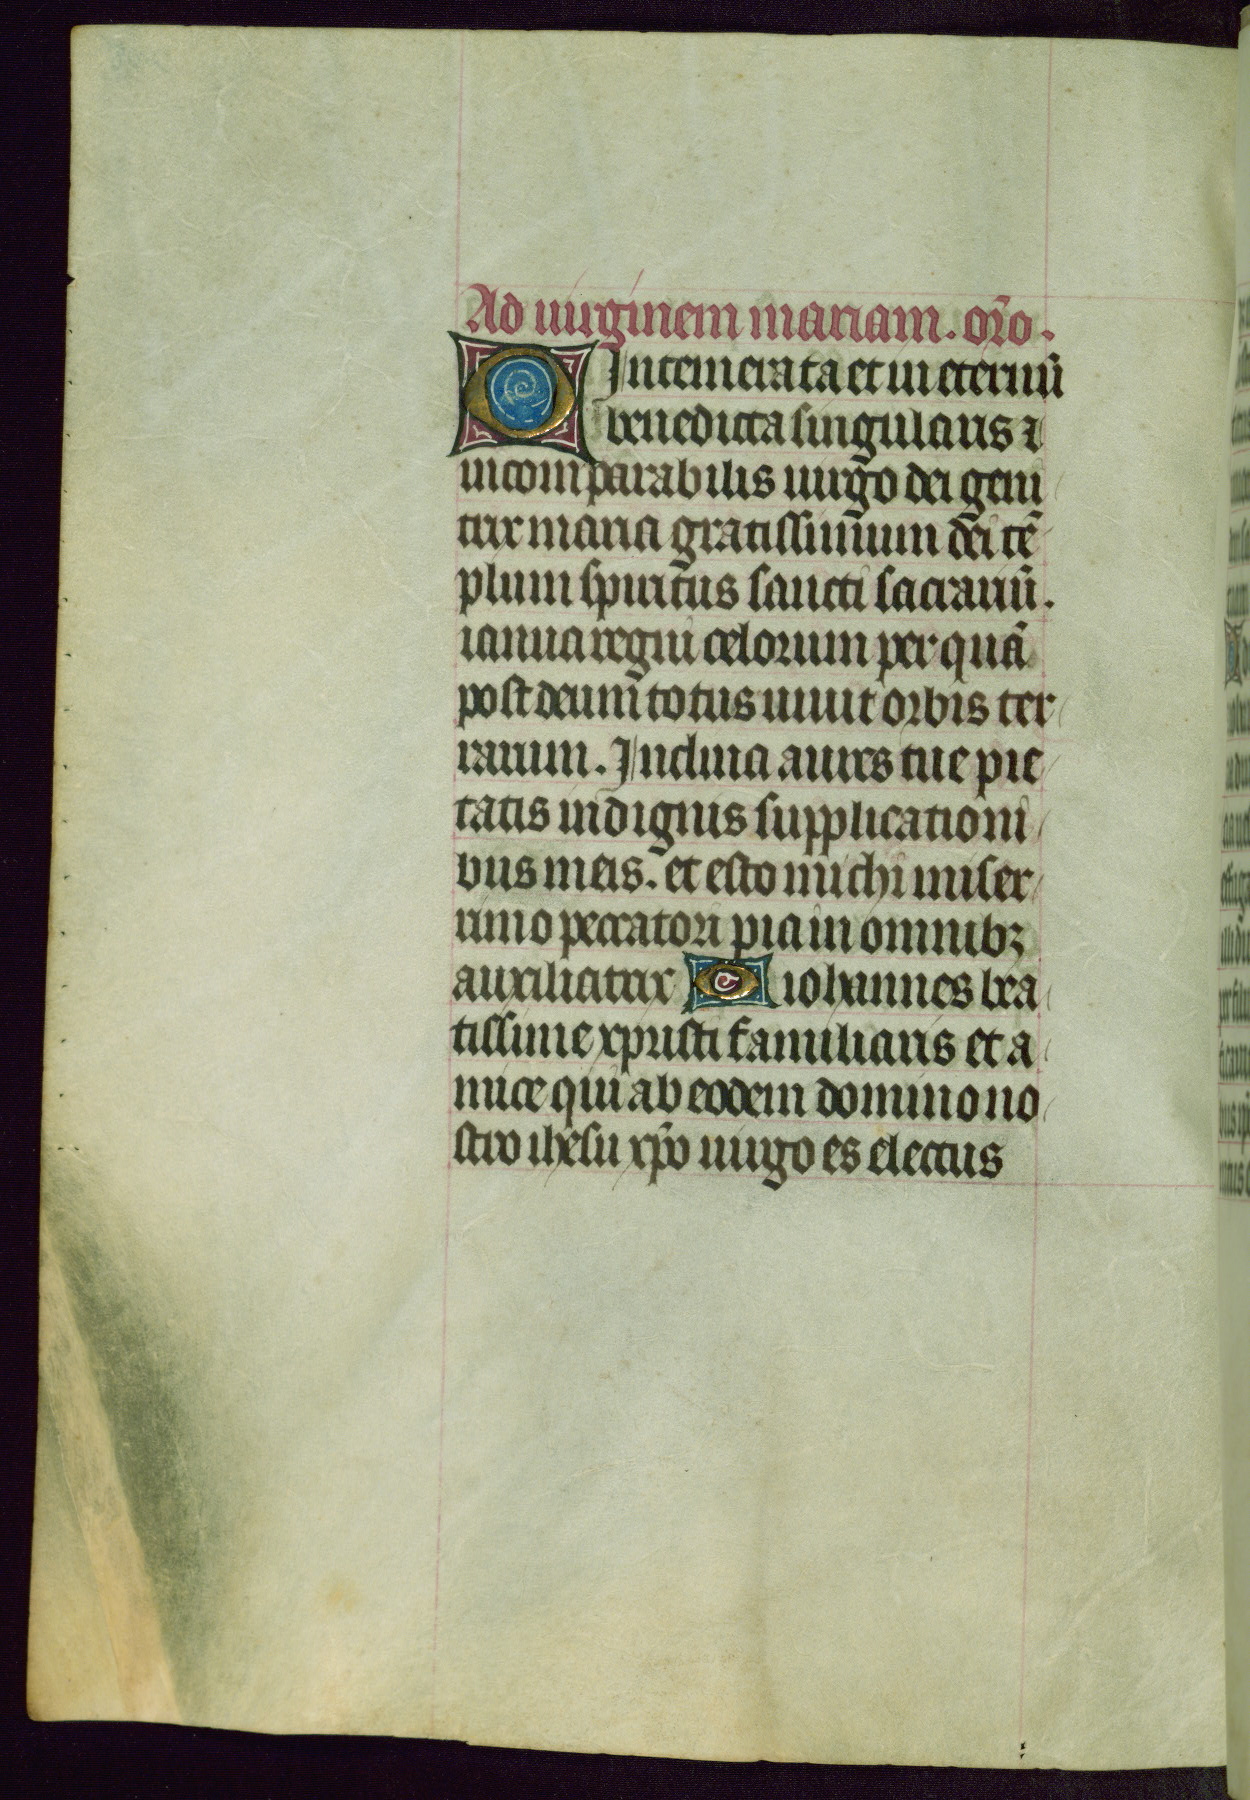 Ad uirginem mariam. orõ.
O Intemerata et in eternũ
benedicta singularis ⁊
incomparabilis uirgo dei geni
trix maria gratissimum dei tẽ
plum spiritus sancti sacrariũ.
ianua regni celorum per quã
post deum totus uiuit orbis ter
rarum. Inclina aures tue pie
tatis indignis supplicationi
bus meis. et esto michi miser
rimo peccatori pia in omnibꝫ
auxiliatrix O iohannes bea
tissime xpristi familiaris et a
mice qui ab eodem domino no
stro ihesu xp̃o uirgo es electus